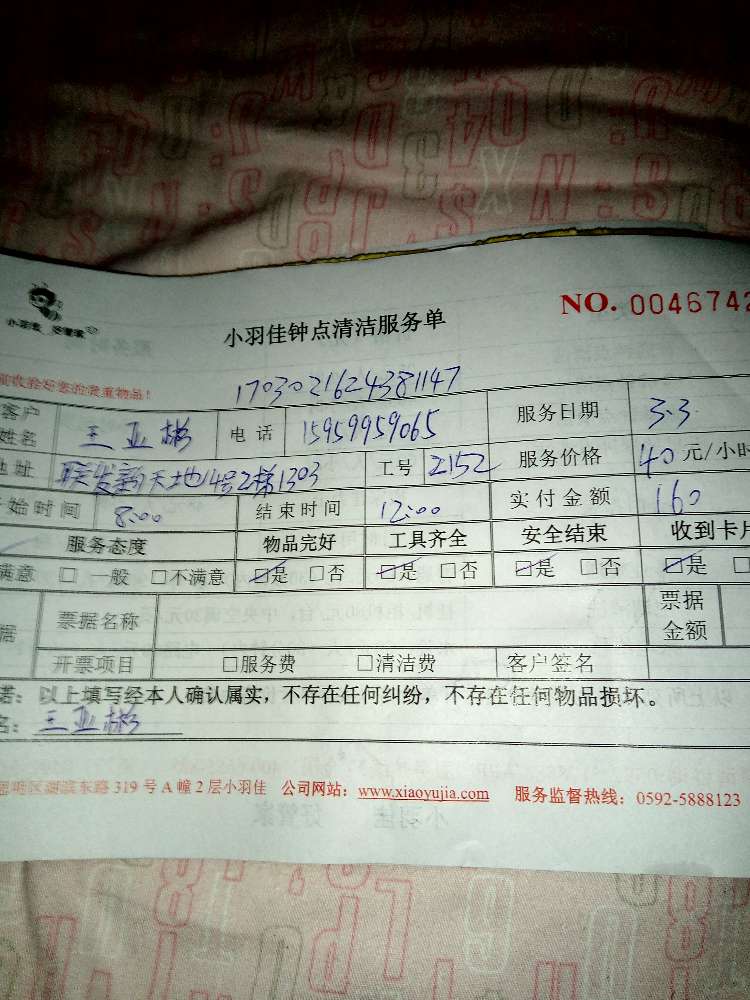 小羽佳 好管家
小羽佳钟点清洁服务单
NO. 0046742
前收验好您的贵重物品!
1703021624381147
客户姓名 王亚彬 电话 15959959065 服务日期 3.3
地址 联发新天地14号2梯1303 工号 2152 服务价格 40元/小时
开始时间 8:00 结束时间 12:00 实付金额 160
服务态度 物品完好 工具齐全 安全结束 收到卡片
满意 □一般 □不满意 □是 □否 □是 □否 □是 □否 □是 □
据 票据名称 票据金额
开票项目 □服务费 □清洁费 客户签名
诺:以上填写经本人确认属实,不存在任何纠纷,不存在任何物品损坏。
名:王亚彬
思明区湖滨东路 319 号 A 幢 2 层小羽佳 公司网站:www.xiaoyujia.com 服务监督热线:0592-5888123